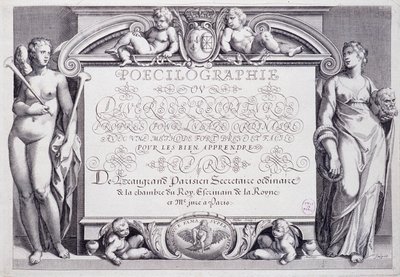 POECILOGRAPHIE
OV
DIVERSES ESCRITVRES
PROPRES POVR L'VSAGE ORDINAIRE
AVEC VNE METHODE FORT BREVE ET FACILE
POVR LES BIEN APPRENDRE
PAR
De Beaugrand Parisien Secretaire ordinaire
de la chambre du Roy, Escrivain de la Royne
et Mc. juré a Paris.
FAMÆ